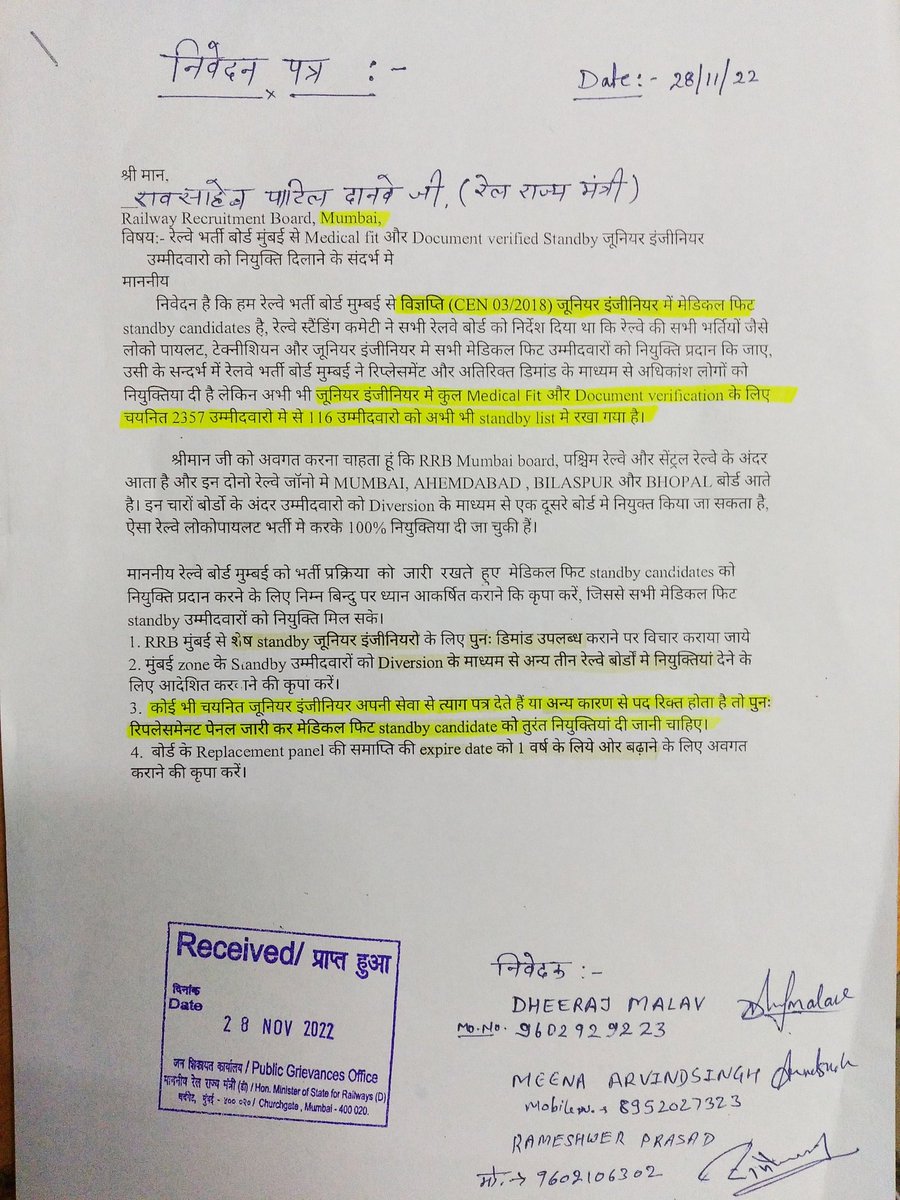 निवेदन पत्र :-
Date:- 28/11/22
श्री मान,
रावसाहेब पाटिल दानवे जी, (रेल राज्य मंत्री)
Railway Recruitment Board, Mumbai,
विषय:- रेल्वे भर्ती बोर्ड मुंबई से Medical fit और Document verified Standby जूनियर इंजीनियर
उम्मीदवारो को नियुक्ति दिलाने के संदर्भ मे
माननीय
निवेदन है कि हम रेल्वे भर्ती बोर्ड मुम्बई से विज्ञप्ति (CEN 03/2018) जूनियर इंजीनियर में मेडिकल फिट
standby candidates है, रेल्वे स्टैंडिंग कमेटी ने सभी रेलवे बोर्ड को निर्देश दिया था कि रेल्वे की सभी भर्तियों जैसे
लोको पायलट, टेक्नीशियन और जूनियर इंजीनियर मे सभी मेडिकल फिट उम्मीदवारों को नियुक्ति प्रदान कि जाए,
उसी के सन्दर्भ में रेलवे भर्ती बोर्ड मुम्बई ने रिप्लेसमेंट और अतिरिक्त डिमांड के माध्यम से अधिकांश लोगों को
नियुक्तिया दी है लेकिन अभी भी जूनियर इंजीनियर मे कुल Medical Fit और Document verification के लिए
चयनित 2357 उम्मीदवारो मे से 116 उम्मीदवारो को अभी भी standby list मे रखा गया है।
श्रीमान जी को अवगत करना चाहता हूं कि RRB Mumbai board, पश्चिम रेल्वे और सेंट्रल रेल्वे के अंदर
आता है और इन दोनो रेल्वे जॉनो मे MUMBAI, AHEMDABAD , BILASPUR और BHOPAL बोर्ड आते
है। इन चारों बोर्डो के अंदर उम्मीदवारो को Diversion के माध्यम से एक दूसरे बोर्ड मे नियुक्त किया जा सकता है,
ऐसा रेल्वे लोकोपायलट भर्ती मे करके 100% नियुक्तिया दी जा चुकी हैं।
माननीय रेल्वे बोर्ड मुम्बई को भर्ती प्रक्रिया को जारी रखते हुए मेडिकल फिट standby candidates को
नियुक्ति प्रदान करने के लिए निम्न बिन्दु पर ध्यान आकर्षित कराने कि कृपा करें, जिससे सभी मेडिकल फिट
standby उम्मीदवारों को नियुक्ति मिल सके।
1. RRB मुंबई से शेष standby जूनियर इंजीनियरो के लिए पुनः डिमांड उपलब्ध कराने पर विचार कराया जाये
2. मुंबई zone के Standby उम्मीदवारों को Diversion के माध्यम से अन्य तीन रेल्वे बोर्डों मे नियुक्तियां देने के
लिए आदेशित करवाने की कृपा करें।
3. कोई भी चयनित जूनियर इंजीनियर अपनी सेवा से त्याग पत्र देते हैं या अन्य कारण से पद रिक्त होता है तो पुनः
रिपलेसमेनट पेनल जारी कर मेडिकल फिट standby candidate को तुरंत नियुक्तियां दी जानी चाहिए।
4. बोर्ड के Replacement panel की समाप्ति की expire date को 1 वर्ष के लिये ओर बढ़ाने के लिए अवगत
कराने की कृपा करें।
Received/ प्राप्त हुआ
दिनांक
Date
28 NOV 2022
जन शिकायत कार्यालय / Public Grievances Office
माननीय रेल राज्य मंत्री (डी) / Hon. Minister of State for Railways (D)
चर्चगेट, मुंबई - ४०० ०२० / Churchgate, Mumbai - 400 020.
निवेदक :-
DHEERAJ MALAV
Mo.No. 9602929223
MEENA ARVINDSINGH
Mobile no. → 8952027323
RAMESHWER PRASAD
मो. → 9602106302